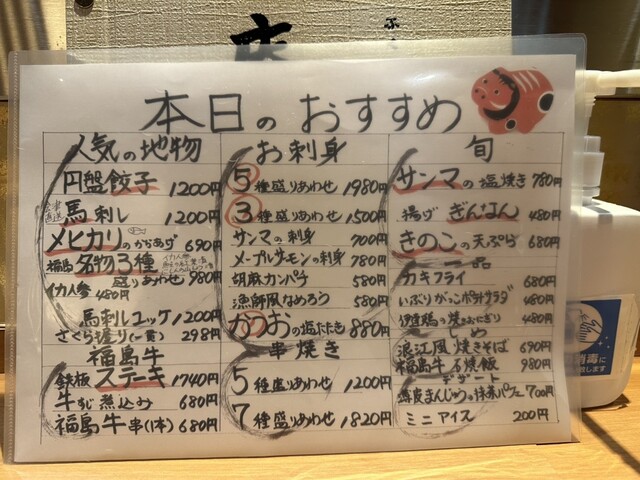 本日のおすすめ
人気の地物
円盤餃子 1200円
会津直送 馬刺し 1200円
メヒカリのからあげ 690円
福島名物3種盛りあわせ 980円
イカ人参 480円
馬刺しユッケ 1200円
さくら握り(一貫) 298円
福島牛
鉄板ステーキ 1740円
牛すじ煮込み 680円
福島牛串(1本) 680円
お刺身
5種盛りあわせ 1980円
3種盛りあわせ 1500円
サンマの刺身 700円
メープルサーモンの刺身 780円
胡麻カンパチ 580円
漁師風なめろう 580円
かつおの塩たたき 880円
串焼き
5種盛りあわせ 1200円
7種盛りあわせ 1820円
旬
サンマの塩焼き 780円
揚げぎんなん 480円
きのこの天ぷら 680円
一品
カキフライ 680円
いぶりがっこポテトサラダ 480円
の焼きおにぎり 480円
〆
浪江風焼きそば 690円
福島牛石焼飯 980円
デザート
薄皮まんじゅうの抹茶パフェ 700円
ミニアイス 200円